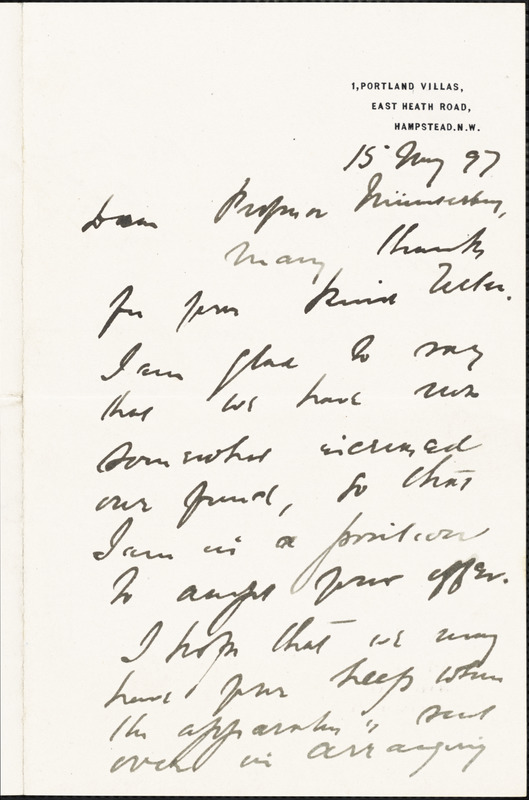 1, PORTLAND VILLAS,
EAST HEATH ROAD,
HAMPSTEAD. N.W.
15 May 97
Dear Professor Münsterberg,
Many thanks
for your kind letter.
I am glad to say
that we have now
somewhat increased
our fund, so that
I am in a position
to accept your offer.
I hope that we may
have your help when
the apparatus is sent
over in arranging